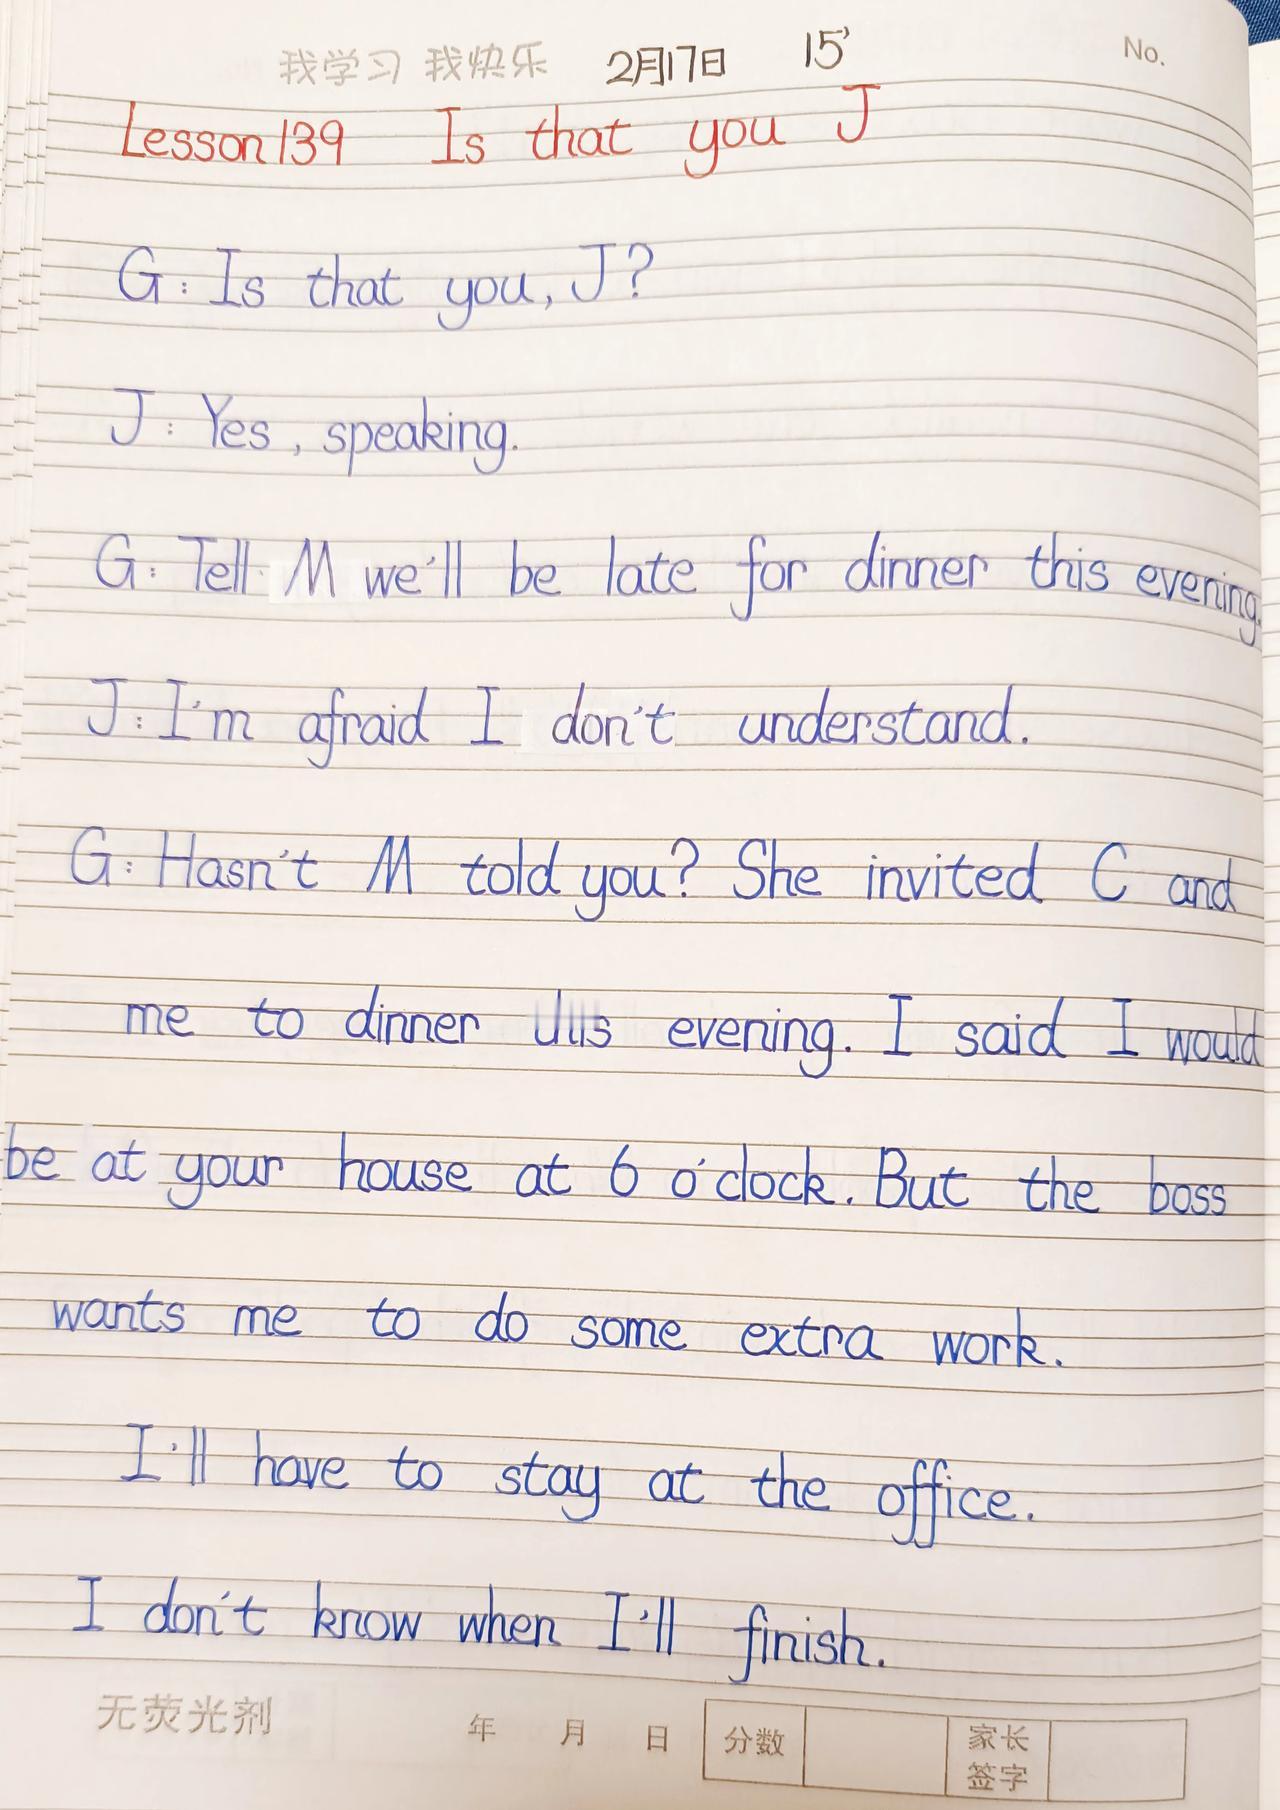 我学习 我快乐 2月17日 15' No.
Lesson 139 Is that you J
G: Is that you, J?
J: Yes, speaking.
G: Tell M we'll be late for dinner this evening.
J: I'm afraid I don't understand.
G: Hasn't M told you? She invited C and
me to dinner evening. I said I would
be at your house at 6 o'clock. But the boss
wants me to do some extra work.
I'll have to stay at the office.
I don't know when I'll finish.
无荧光剂 年 月 日 分数 家长
签字